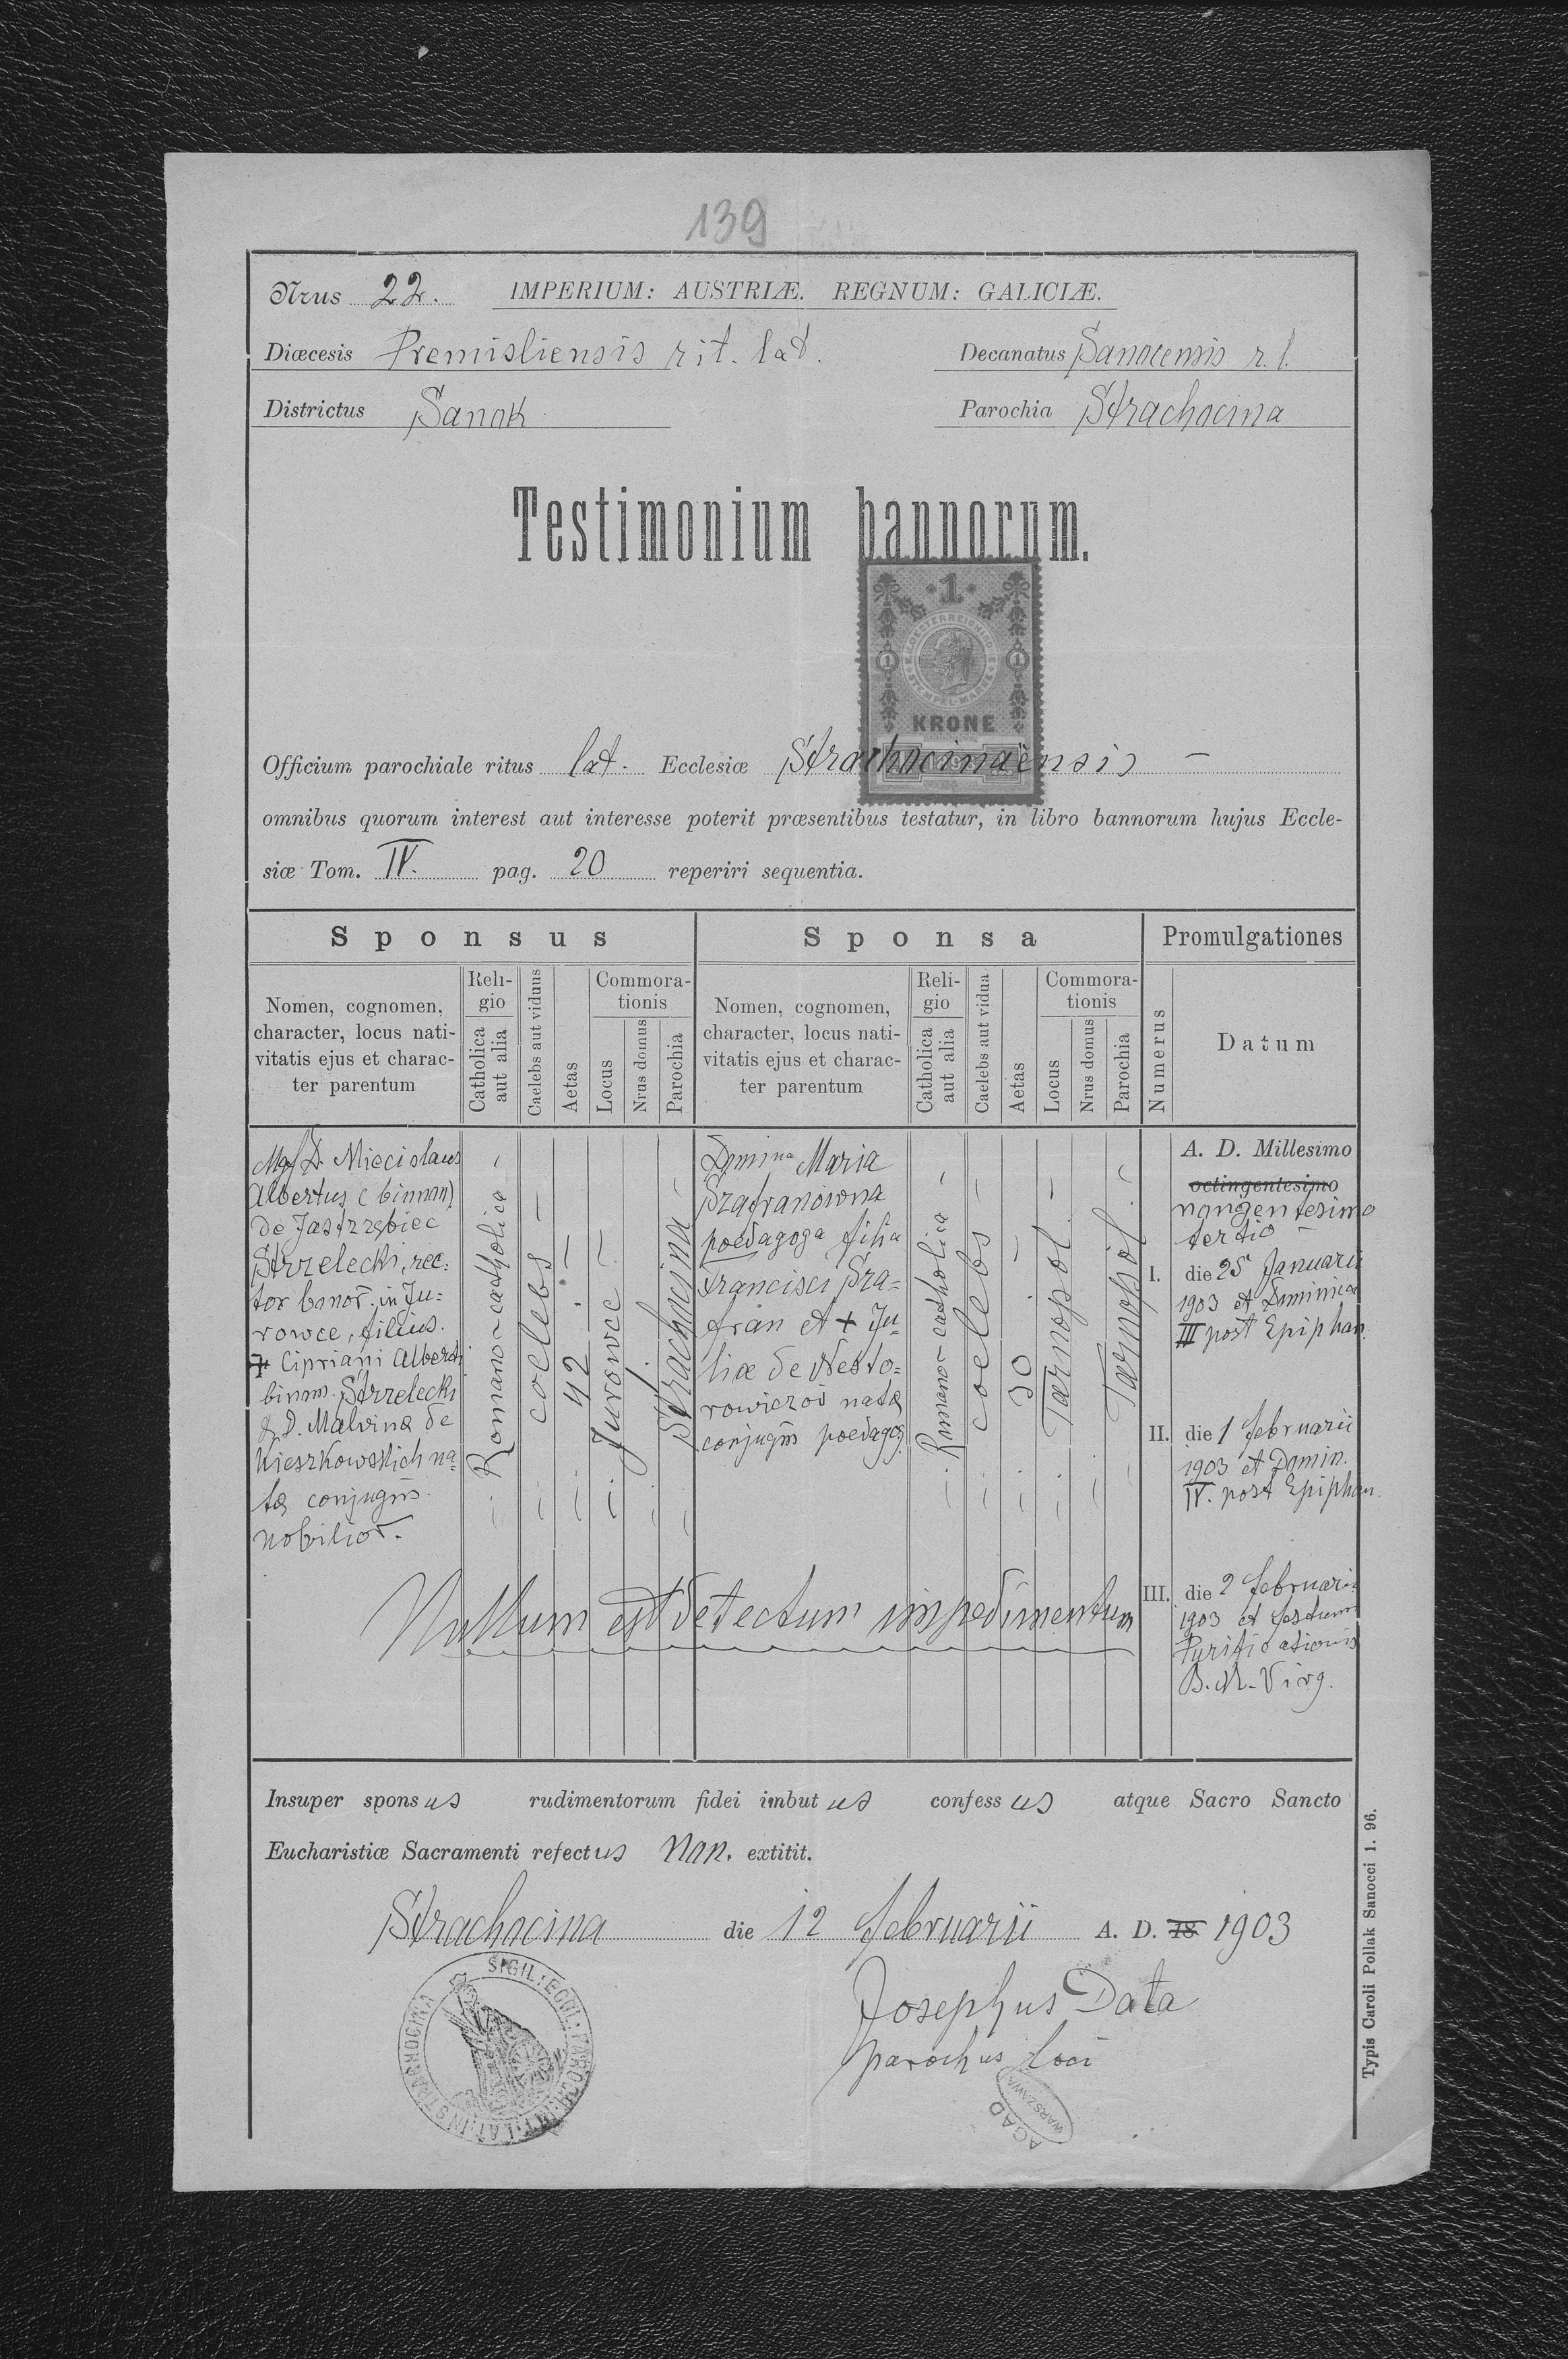 139
Nrus 22. IMPERIUM: AUSTRIÆ. REGNUM: GALICIÆ.
Diœcesis Premisliensis rit. lat. Decanatus Sanocensis r. l.
Districtus Sanok Parochia Strachocina
Testimonium bannorum.
1
1 1
KRONE
Officium parochiale ritus lat. Ecclesiæ Strachocinaënsis –
omnibus quorum interest aut interesse poterit præsentibus testatur, in libro bannorum hujus Eccle-
siæ Tom. IV. pag. 20 reperiri sequentia.
Sponsus Sponsa Promulgationes
Nomen, cognomen,
character, locus nati-
vitatis ejus et charac-
ter parentum
Reli-
gio
Catholica
aut alia
Caelebs aut viduus
Aetas
Commora-
tionis
Locus
Nrus domus
Parochia
Nomen, cognomen,
character, locus nati-
vitatis ejus et charac-
ter parentum
Reli-
gio
Catholica
aut alia
Caelebs aut vidua
Aetas
Commora-
tionis
Locus
Nrus domus
Parochia
Numerus
Datum
D. Miecislaus
Albertus (binnom)
de Jastrzębiec
Strzelecki, rec:
tor bonor. in Ju:
rowce, filius.
Cipriani Alberti
binom. Strzelecki
& D. Malvina de
Wieszkowskich na:
tæ conjugm
nobilior.
Romano-catholica
coelebs
42
Jurowce
Strachocina
Domina Maria
Szafranówna
poedagoga filia
Francisci Sza=
fran et + Ju=
liæ de Nesto=
rowiczów natæ
conjugm poedagog.
Romano-catholica
coelebs
30
Tarnopol
Tarnopol
A. D. Millesimo
octingentesimo
nongentesimo
tertio
I. die 25 Januarii
1903 et Dominica
III post Epiphan.
II. die 1 februarii
1903 et Domin.
IV. post Epiphan.
III. die 2 februarii
1903 et festum
Purificationis
B. M. Virg.
Nullum est detectum impedimentum
Insuper sponsus rudimentorum fidei imbutus confessus atque Sacro Sancto
Eucharistiæ Sacramenti refectus non. extitit.
Strachocina die 12 februarii A. D. 18 1903
Josephus Data
parochus loci
SIGIL: ECCL: PAROCH: RIT: LAT: IN STRACHOCINA
AGAD
WARSZAWA
Typis Caroli Pollak Sanocci 1. 96.